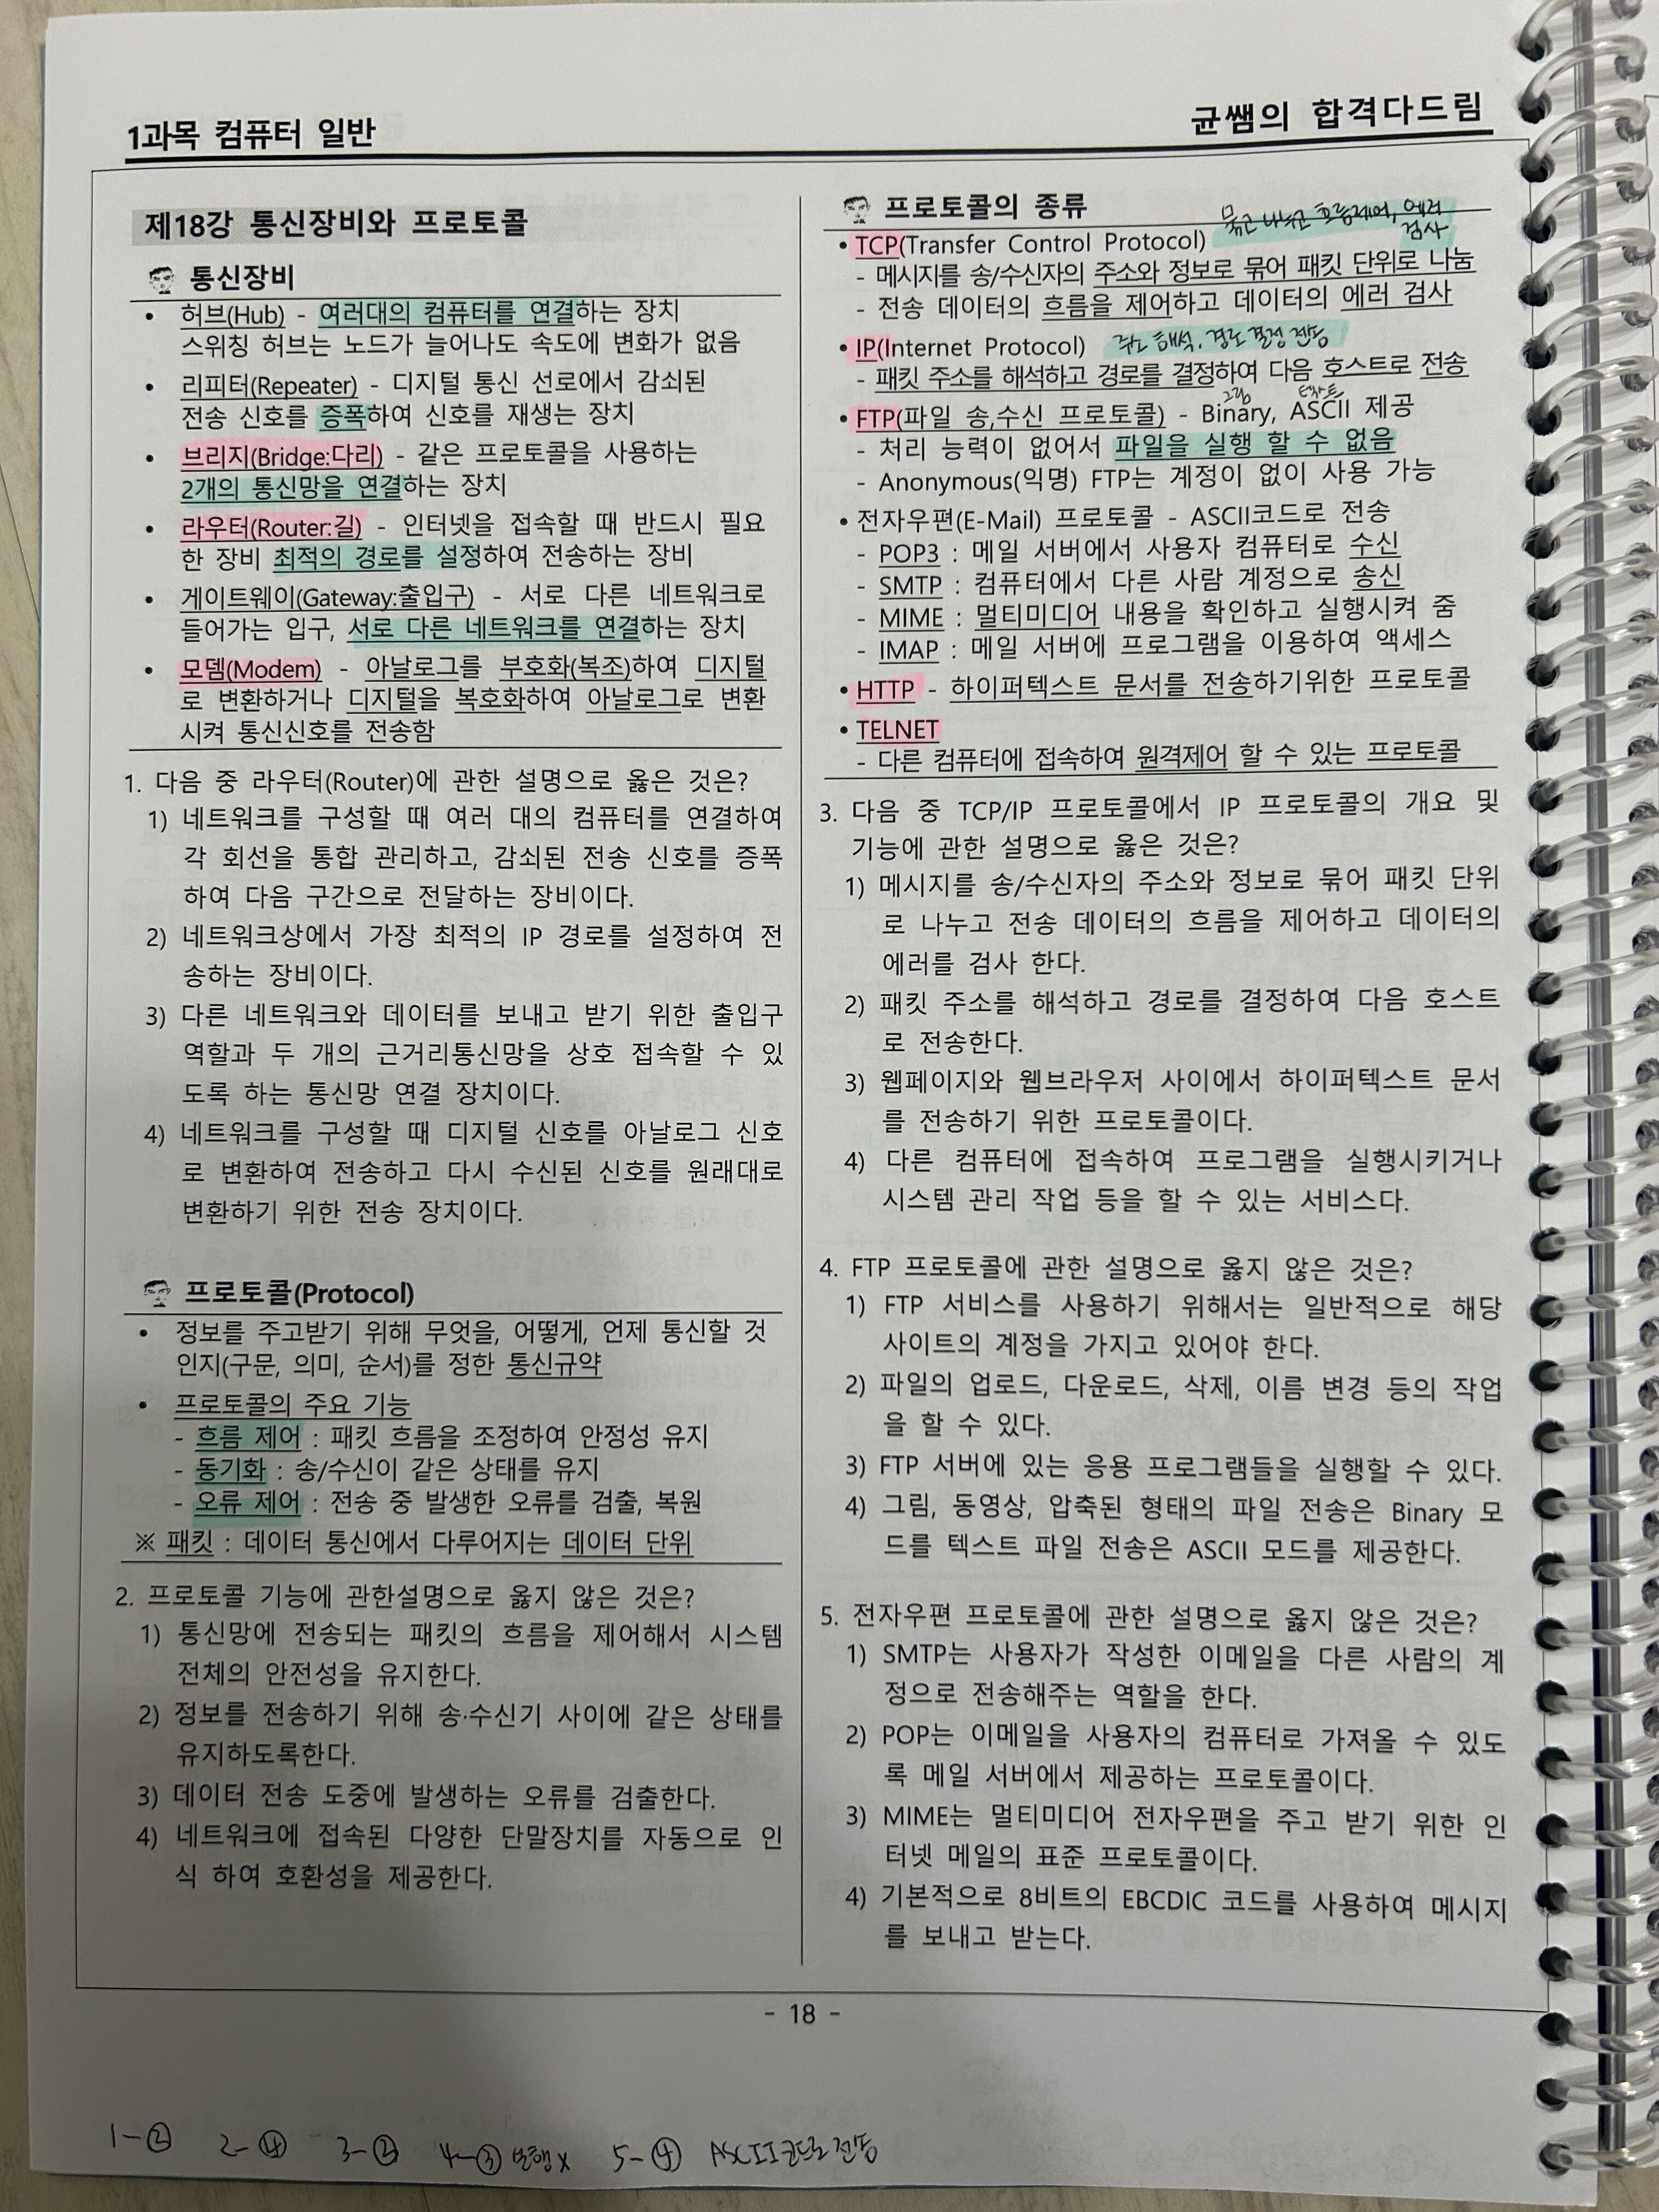 1과목 컴퓨터 일반
균쌤의 합격다드림
제18강 통신장비와 프로토콜
통신장비
• 허브(Hub) - 여러대의 컴퓨터를 연결하는 장치
스위칭 허브는 노드가 늘어나도 속도에 변화가 없음
• 리피터(Repeater) - 디지털 통신 선로에서 감쇠된
전송 신호를 증폭하여 신호를 재생는 장치
• 브리지(Bridge:다리) - 같은 프로토콜을 사용하는
2개의 통신망을 연결하는 장치
• 라우터(Router:길) - 인터넷을 접속할 때 반드시 필요
한 장비 최적의 경로를 설정하여 전송하는 장비
• 게이트웨이(Gateway:출입구) - 서로 다른 네트워크로
들어가는 입구, 서로 다른 네트워크를 연결하는 장치
• 모뎀(Modem) - 아날로그를 부호화(복조)하여 디지털
로 변환하거나 디지털을 복호화하여 아날로그로 변환
시켜 통신신호를 전송함
1. 다음 중 라우터(Router)에 관한 설명으로 옳은 것은?
1) 네트워크를 구성할 때 여러 대의 컴퓨터를 연결하여
각 회선을 통합 관리하고, 감쇠된 전송 신호를 증폭
하여 다음 구간으로 전달하는 장비이다.
2) 네트워크상에서 가장 최적의 IP 경로를 설정하여 전
송하는 장비이다.
3) 다른 네트워크와 데이터를 보내고 받기 위한 출입구
역할과 두 개의 근거리통신망을 상호 접속할 수 있
도록 하는 통신망 연결 장치이다.
4) 네트워크를 구성할 때 디지털 신호를 아날로그 신호
로 변환하여 전송하고 다시 수신된 신호를 원래대로
변환하기 위한 전송 장치이다.
프로토콜(Protocol)
• 정보를 주고받기 위해 무엇을, 어떻게, 언제 통신할 것
인지(구문, 의미, 순서)를 정한 통신규약
• 프로토콜의 주요 기능
- 흐름 제어 : 패킷 흐름을 조정하여 안정성 유지
- 동기화 : 송/수신이 같은 상태를 유지
- 오류 제어 : 전송 중 발생한 오류를 검출, 복원
※ 패킷 : 데이터 통신에서 다루어지는 데이터 단위
2. 프로토콜 기능에 관한설명으로 옳지 않은 것은?
1) 통신망에 전송되는 패킷의 흐름을 제어해서 시스템
전체의 안전성을 유지한다.
2) 정보를 전송하기 위해 송·수신기 사이에 같은 상태를
유지하도록한다.
3) 데이터 전송 도중에 발생하는 오류를 검출한다.
4) 네트워크에 접속된 다양한 단말장치를 자동으로 인
식 하여 호환성을 제공한다.
프로토콜의 종류
묶고 나누고 흐름제어, 에러
검사
• TCP(Transfer Control Protocol)
- 메시지를 송/수신자의 주소와 정보로 묶어 패킷 단위로 나눔
- 전송 데이터의 흐름을 제어하고 데이터의 에러 검사
• IP(Internet Protocol) 주소 해석, 경로 결정 전송
- 패킷 주소를 해석하고 경로를 결정하여 다음 호스트로 전송
그림 텍스트
• FTP(파일 송,수신 프로토콜) - Binary, ASCII 제공
- 처리 능력이 없어서 파일을 실행 할 수 없음
- Anonymous(익명) FTP는 계정이 없이 사용 가능
• 전자우편(E-Mail) 프로토콜 - ASCII코드로 전송
- POP3 : 메일 서버에서 사용자 컴퓨터로 수신
- SMTP : 컴퓨터에서 다른 사람 계정으로 송신
- MIME : 멀티미디어 내용을 확인하고 실행시켜 줌
- IMAP : 메일 서버에 프로그램을 이용하여 액세스
• HTTP - 하이퍼텍스트 문서를 전송하기위한 프로토콜
• TELNET
- 다른 컴퓨터에 접속하여 원격제어 할 수 있는 프로토콜
3. 다음 중 TCP/IP 프로토콜에서 IP 프로토콜의 개요 및
기능에 관한 설명으로 옳은 것은?
1) 메시지를 송/수신자의 주소와 정보로 묶어 패킷 단위
로 나누고 전송 데이터의 흐름을 제어하고 데이터의
에러를 검사 한다.
2) 패킷 주소를 해석하고 경로를 결정하여 다음 호스트
로 전송한다.
3) 웹페이지와 웹브라우저 사이에서 하이퍼텍스트 문서
를 전송하기 위한 프로토콜이다.
4) 다른 컴퓨터에 접속하여 프로그램을 실행시키거나
시스템 관리 작업 등을 할 수 있는 서비스다.
4. FTP 프로토콜에 관한 설명으로 옳지 않은 것은?
1) FTP 서비스를 사용하기 위해서는 일반적으로 해당
사이트의 계정을 가지고 있어야 한다.
2) 파일의 업로드, 다운로드, 삭제, 이름 변경 등의 작업
을 할 수 있다.
3) FTP 서버에 있는 응용 프로그램들을 실행할 수 있다.
4) 그림, 동영상, 압축된 형태의 파일 전송은 Binary 모
드를 텍스트 파일 전송은 ASCII 모드를 제공한다.
5. 전자우편 프로토콜에 관한 설명으로 옳지 않은 것은?
1) SMTP는 사용자가 작성한 이메일을 다른 사람의 계
정으로 전송해주는 역할을 한다.
2) POP는 이메일을 사용자의 컴퓨터로 가져올 수 있도
록 메일 서버에서 제공하는 프로토콜이다.
3) MIME는 멀티미디어 전자우편을 주고 받기 위한 인
터넷 메일의 표준 프로토콜이다.
4) 기본적으로 8비트의 EBCDIC 코드를 사용하여 메시지
를 보내고 받는다.
- 18 -
1-② 2-④ 3-② 4-③ 실행x 5-④ ASCII코드로 전송